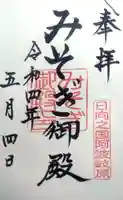 奉拝
日向之国阿波岐原
みそぎ御殿
令和四年
五月四日